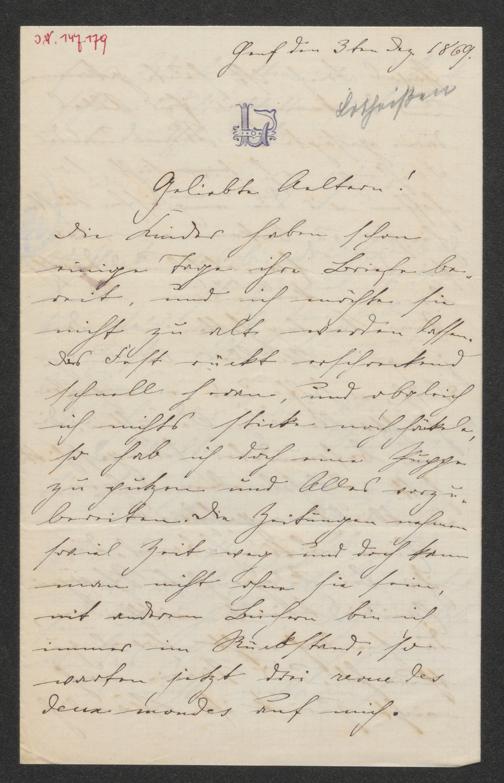 J.N. 147.179
Genf den 3ten Dez 1869.
Lotheißen
Geliebte Aeltern!
Die Kinder haben schon
einige Tage ihre Briefe be-
reit, und ich möchte sie
nicht zu alt werden lassen.
Das Fest rückt erschreckend
schnell heran, und obgleich
ich nichts sticke noch häkele,
so hab ich doch eine Puppe
zu putzen und Alles vorzu-
bereiten. Die Zeitungen nehmen
soviel Zeit weg und doch kann
man nicht ohne sie sein,
mit anderen Büchern bin ich
immer im Rückstand, so
warten jetzt drei revue des
deux mondes auf mich.